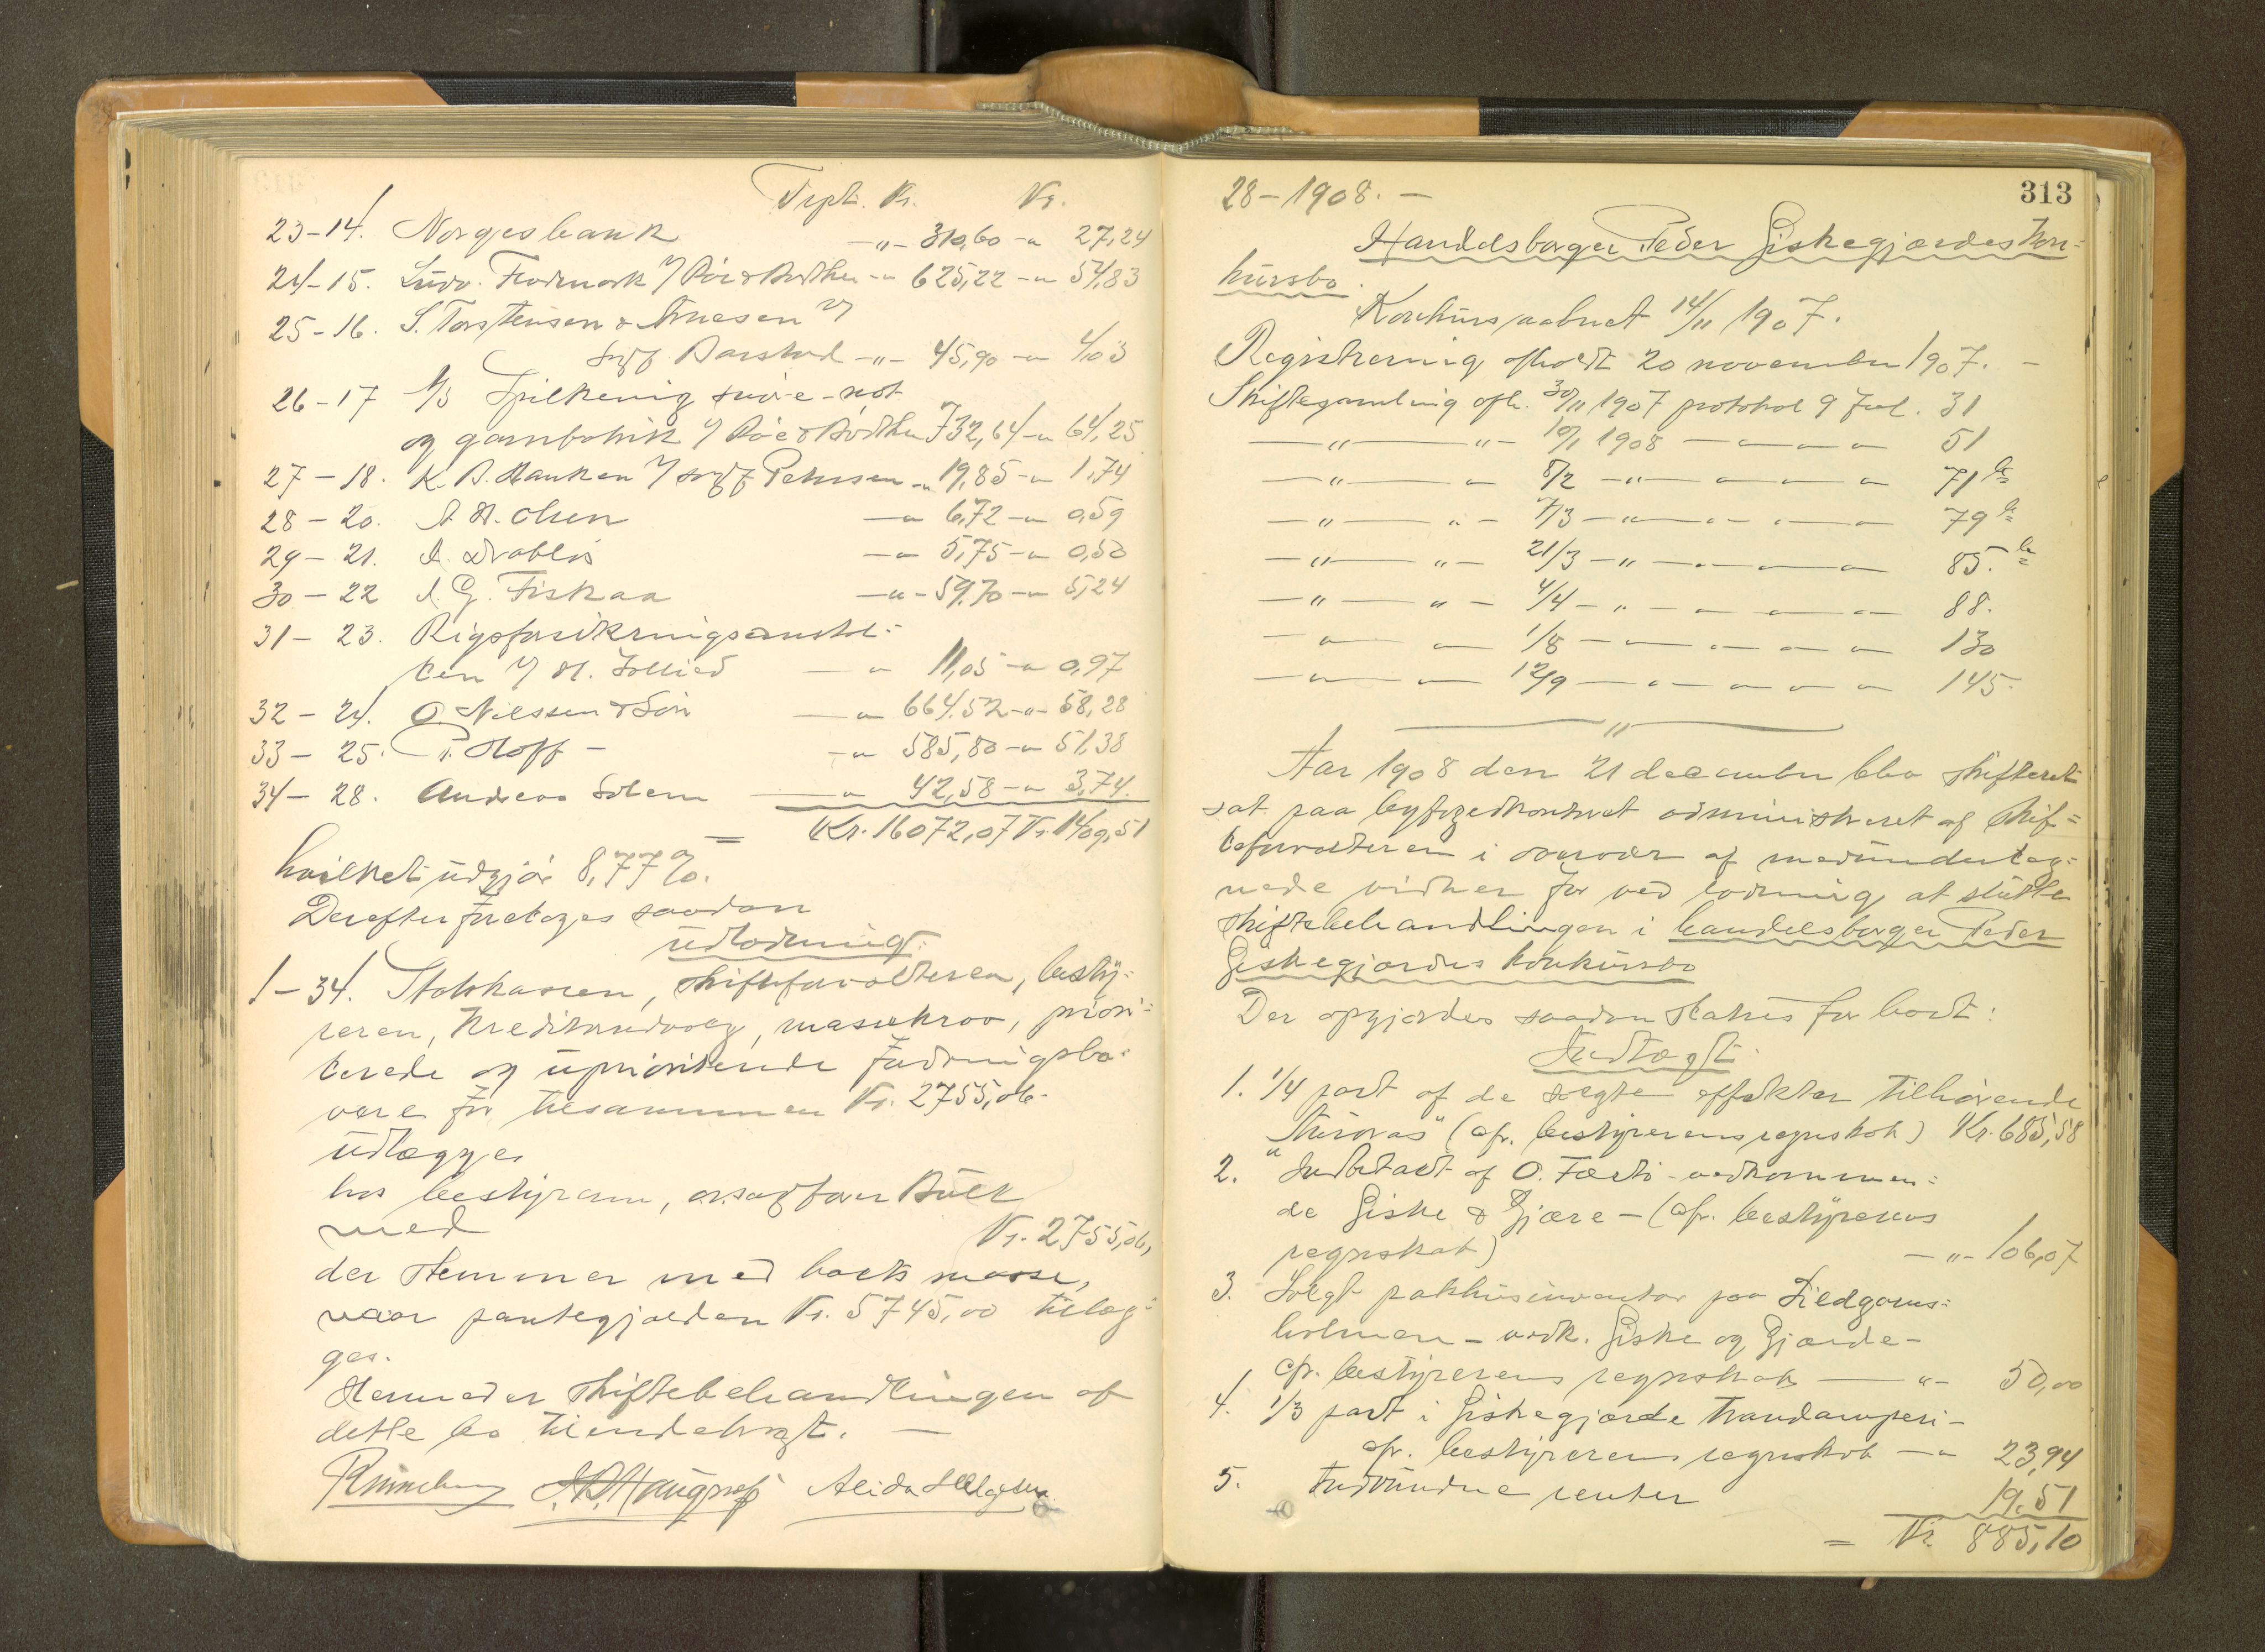 Trpt. Kr. Kr.
23-14. Norgesbank -"- 310,60 -"- 27,24
24-15. Ludv. Flodmark v/ -"- 625,22 -"- 54,83
25-16. S. Torstensen & Arnesen v/
sagf. Barstad -"- 45,90 -"- 4,03
26-17 A/S Spilkevig snøre- not-
og garnfabrik v/ 732,64 -"- 64,25
27-18. K. B. Hanken v/ sagf Petersen -"- 19,85 -"- 1,74
28-20. A. H. Olsen -"- 6,72 -"- 0,59
29-21. A. Drabløs -"- 5,75 -"- 0,50
30-22 A. G. Fiskaa -"- 59,70 -"- 5,24
31-23. Rigsforsikringsanstal-
ten v/ H. Sollied -"- 11,05 -"- 0,97
32-24. O. Nilssen & Søn -"- 664,52 -"- 58,28
33-25. P. Hoff - -"- 585,80 -"- 51,38
34-28. Andreas Solem -"- 42,58 -"- 3,74.
= Kr. 16072,07 Kr. 1409,51
hvilket udgjør 8,77%.
Derefter foretoges saadan
udlodning:
1-34. Statskassen, skifteforvalteren, besty-
reren, kreditorudvalg, massekrav, priori-
terede og uprioriterede fordringsha-
vere for tilsammen Kr. 2755,06.
udlægges
hos bestyreren, o.r.sagfører
med Kr. 2755,06,
der stemmer med boets masse,
naar pantegjælden Kr. 5745,00 tillæg-
ges.
Hermed er skiftebehandlingen af
dette bo tilendebragt. -
28-1908. - 313
Handelsborger Peder Giskegjærdes kon-
kursbo.
Konkurs aabnet 14/11 1907.
Registrering afholdt 20 november 1907. -
Skiftesamling afh. 30/11 1907 protokol 9 fol. 31
-"- -"- 10/1 1908 -"- 51
-"- -"- 8/2 -"- 71 b
-"- -"- 7/3 -"- 79 b
-"- -"- 21/3 -"- 85. b
-"- -"- 4/4 -"- 88.
-"- -"- 1/8 -"- 130
-"- -"- 12/9 -"- 145.
Aar 1908 den 21 december blev skifteret
sat paa byfogedkontoret administreret af skif-
teforvalteren i overvær af medunderteg-
nede vidner for ved lodning at slutte
skiftebehandlingen i handelsborger Peder
Giskegjærdes konkursbo
Der opgjordes saadan status for boet:
Indtægt.
1. 1/4 part af de solgte effekter tilhørende
(cfr. bestyrerens regnskab) Kr. 685,58
2. Indbetalt af O. vedkommen-
de Giske & Gjære - (cfr. bestyrerens
regnskab) -"- 106,07
3. Solgt pakhusinventar paa
holmen - vedk. Giske og Gjærde -
cfr. bestyrerens regnskab -"- 50,00
4. 1/3 part i Giskegjærde trandamperi -
cfr. bestyrerens regnskab -"- 23,94
5. Indvundne renter 19,51
= Kr. 885,10